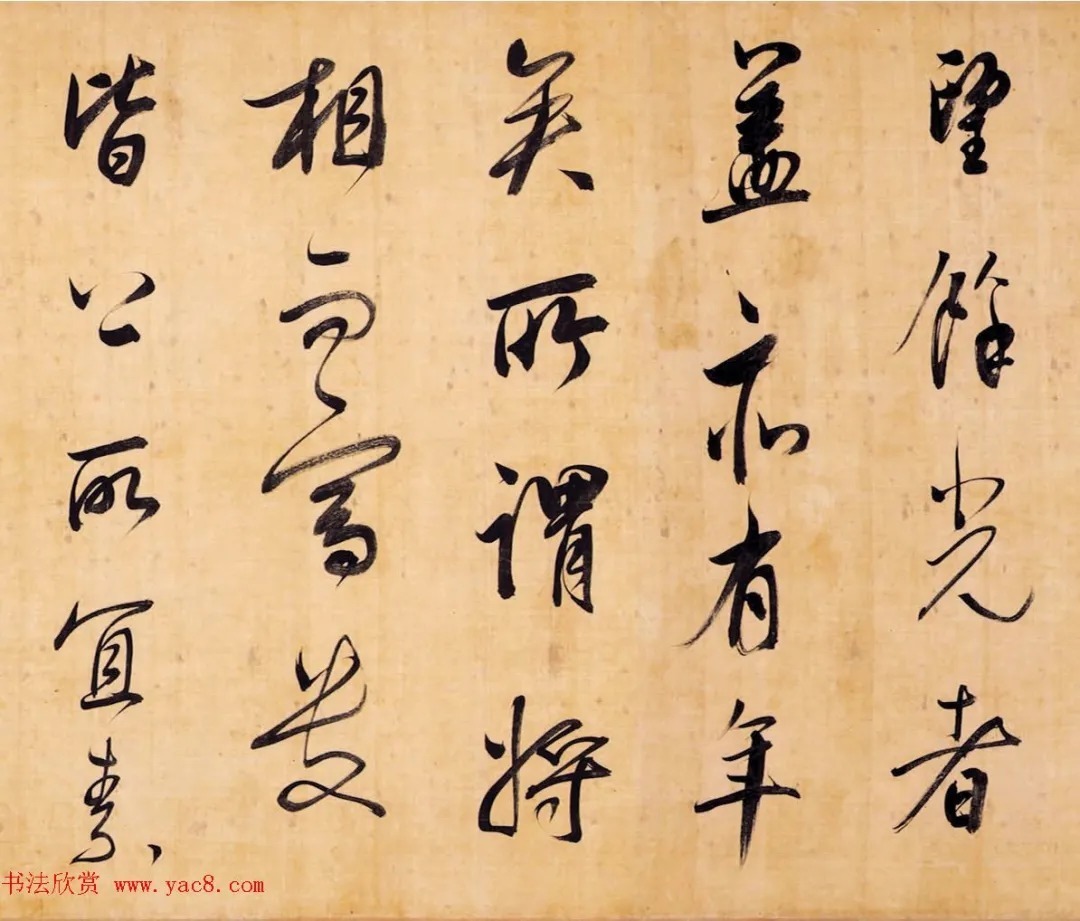 望餘光者
蓋亦有年
矣所謂將
相
皆公所宜素
书法欣赏 www.yac8.com